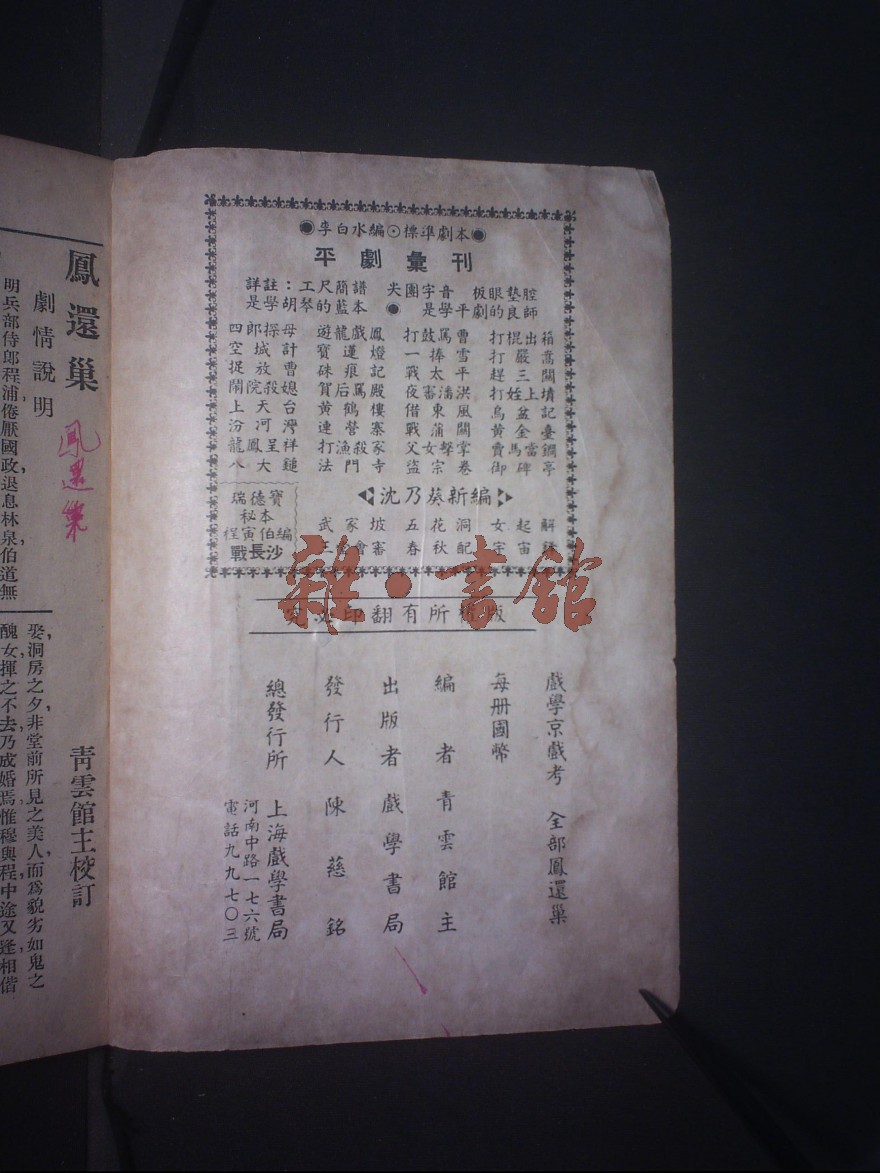 李白水編⊙標準劇本
平劇彙刊
詳註：工尺簡譜 尖團字音 板眼墊腔
是學胡琴的藍本 ● 是學平劇的良師
四郎探母 遊龍戲鳳 打鼓罵曹 打棍出箱
空城計 寶蓮燈 一捧雪 打嚴嵩
捉放曹 硃痕記 戰太平 趕三關
鬧院殺媳 賀后罵殿 夜審潘洪 打姪上墳
上天台 黃鶴樓 借東風 烏盆記
汾河灣 連營寨 戰蒲關 黃金臺
龍鳳呈祥 打漁殺家 父女擊掌 賣馬當鐧
八大鎚 法門寺 盜宗卷 御碑亭
沈乃葵新編
武家坡 五花洞 女起解
三堂會審 春秋配 宇宙鋒
瑞德寶
秘本
程寅伯編
戰長沙
版權所有翻印必究
戲學京戲考 全部鳳還巢
每册國幣
編者青雲館主
出版者戲學書局
發行人陳慈銘
總發行所 上海戲學書局
河南中路一七六號
電話九九七〇三
雜·書館
鳳還巢
鳳還巢
青雲館主校訂
劇情說明
明兵部侍郎程浦倦厭國政退息林泉伯道無
娶，洞房之夕，非堂前所見之美人，而爲貌劣如鬼之
醜女，揮之不去，乃成婚焉，惟穆與程中途又逢，相偕